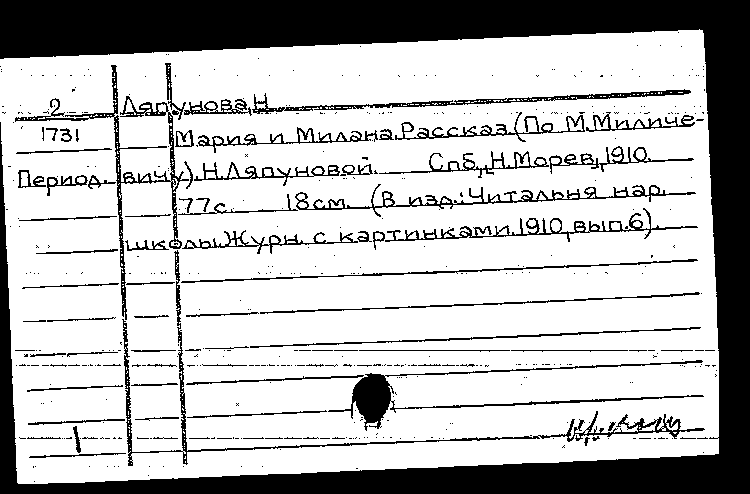 2 Ляпунова, Н
1731 Мария и Милана. Рассказ. (По М. Миличе-
Период. вичу). Н. Ляпуновой. Спб, Н. Морев, 1910.
77с. 18см. (В изд.: Читальня нар.
школы. Журн. с картинками. 1910, вып. 6).
1